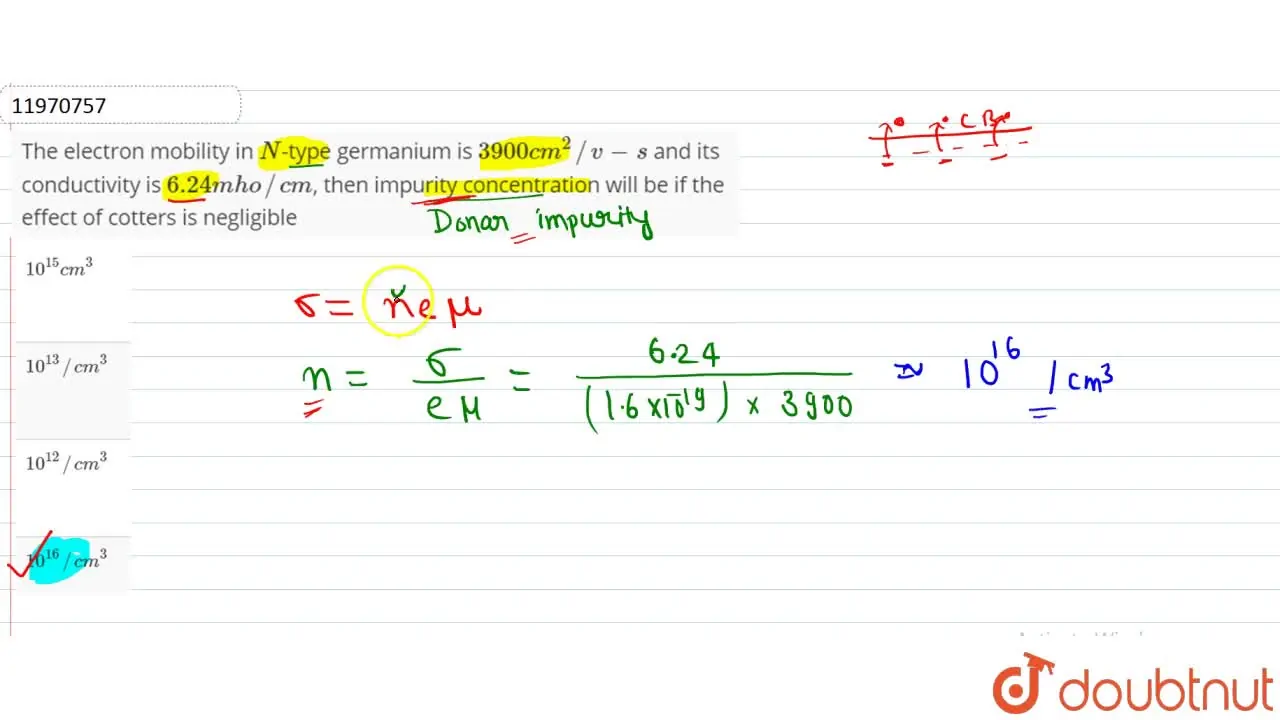 11970757
The electron mobility in N-type germanium is 3900cm²/v − s and its
conductivity is 6.24mho/cm, then impurity concentration will be if the
effect of cotters is negligible
Donar impurity
CB
10¹⁵cm³
σ = neμ
10¹³/cm³
n = σ/eμ = 6.24/((1.6×10⁻¹⁹) × 3900) ≈ 10¹⁶ /cm³
10¹²/cm³
10¹⁶/cm³
doubtnut